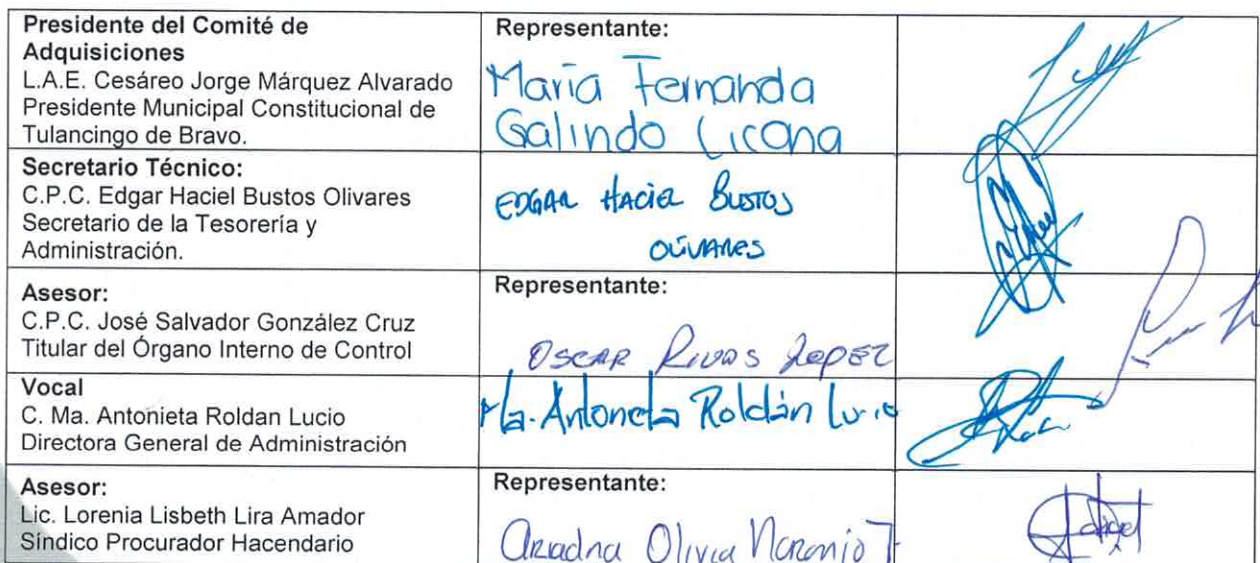 Presidente del Comité de
Adquisiciones
L.A.E. Cesáreo Jorge Márquez Alvarado
Presidente Municipal Constitucional de
Tulancingo de Bravo.
Representante:
María Fernanda
Galindo Licona
Secretario Técnico:
C.P.C. Edgar Haciel Bustos Olivares
Secretario de la Tesorería y
Administración.
EDGAR HACIEL BUSTOS
OLIVARES
Asesor:
C.P.C. José Salvador González Cruz
Titular del Órgano Interno de Control
Representante:
OSCAR RIVAS LOPEZ
Vocal
C. Ma. Antonieta Roldan Lucio
Directora General de Administración
Ma. Antonieta Roldán Lucio
Asesor:
Lic. Lorenia Lisbeth Lira Amador
Síndico Procurador Hacendario
Representante:
Ariadna Olivia Naranjo T